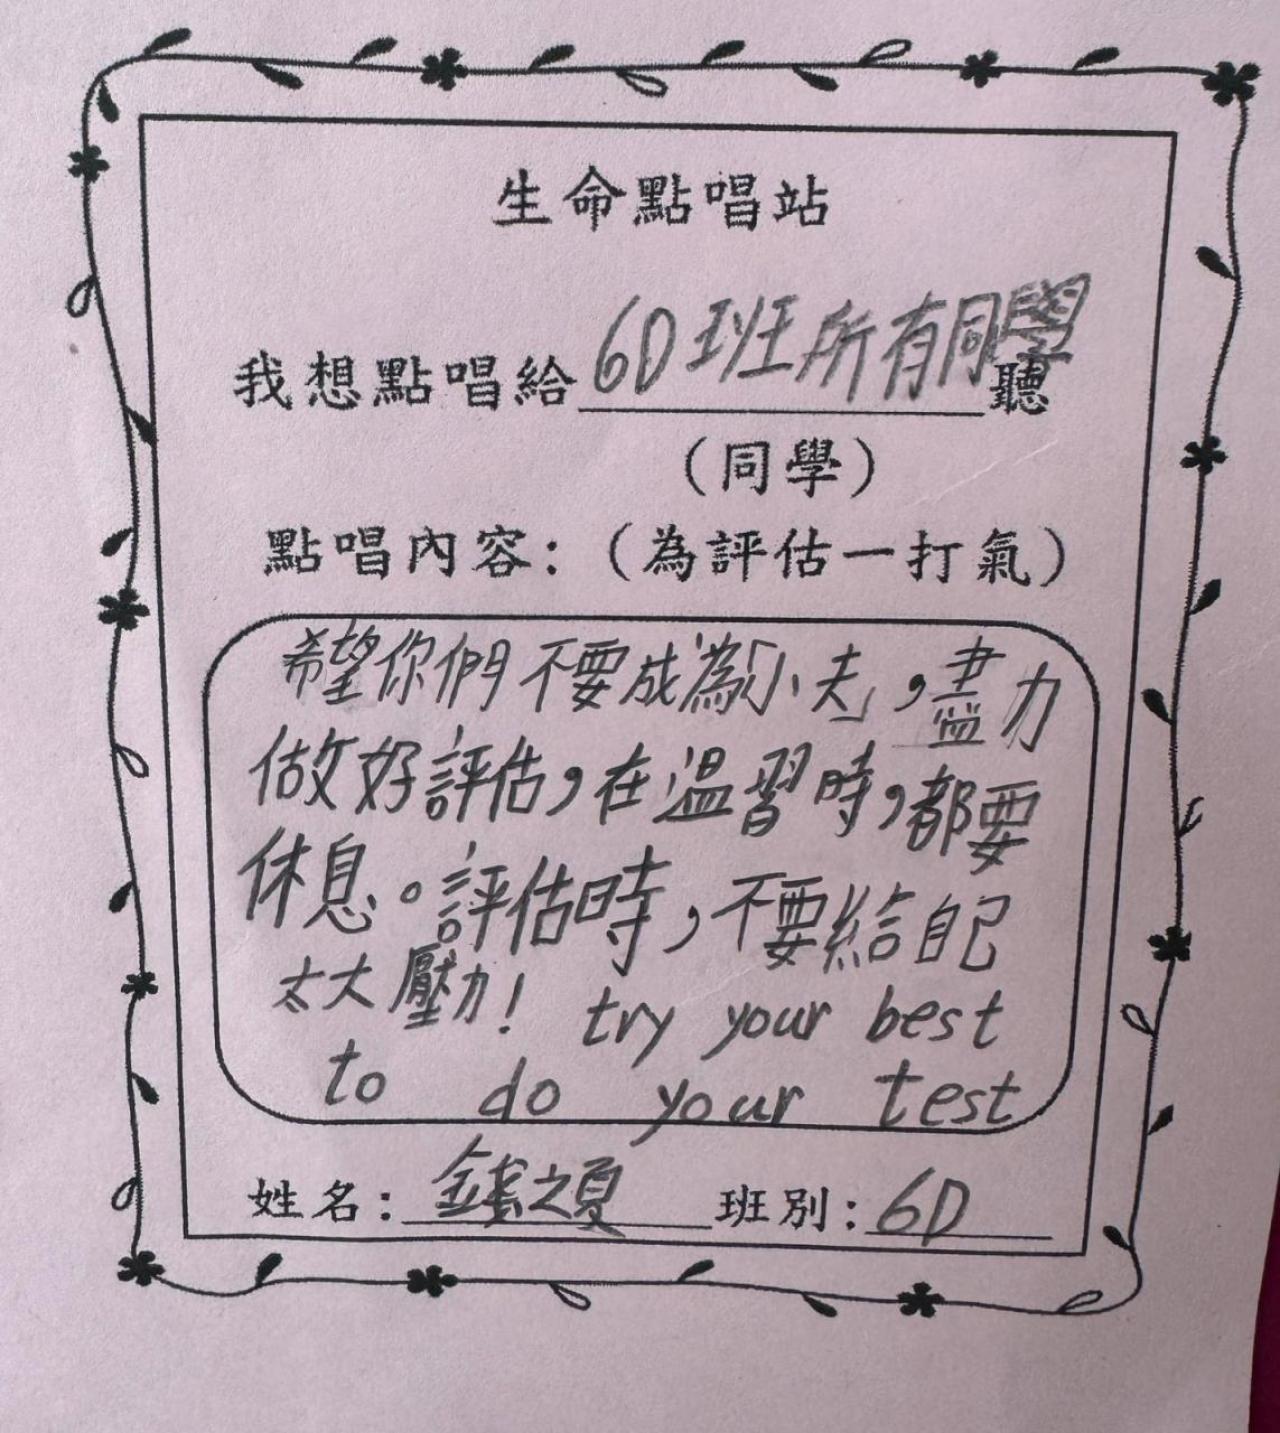 生命點唱站
我想點唱給6D班所有同學聽
(同學)
點唱內容：(為評估一打氣)
希望你們不要成為「小夫」，盡力
做好評估，在溫習時，都要
休息。評估時，不要給自己
太大壓力！ try your best
to do your test
姓名： 班別：6D